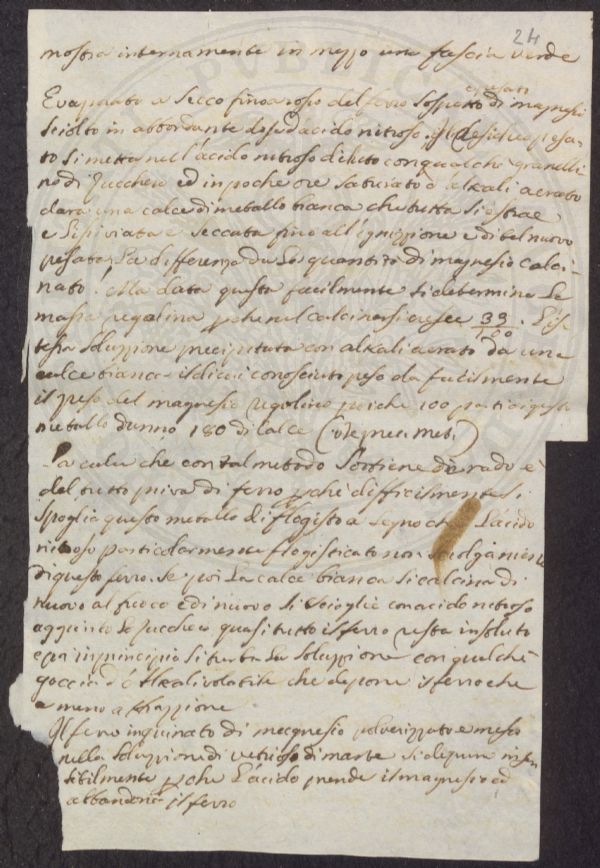 24
mostra internamente in mezzo una fascia verde
Evaporato a secco fino a rosso del ferro sospetto di magnesi
sciolto in abbondante acido nitroso. Il pesa-
to si metta nell'acido nitroso diluto con qualche granelli
no di Zucchero ed in poche ore saturato d'alkali aerato
dara una calce di metallo bianca che tutta si
e si seccata fino all'ignizione e di bel nuovo
pesata. La differenza da la quantità di magnesio calci-
nato. Ma data questa facilmente si determina la
massa regolina poiche nel calcinarsi cresce
tessa soluzione precipitata con alkali aerato da una
calce bianca il di cui conosciuto peso da facilmente
il peso del magnesio regolino poiche 100 parti di questo
metallo danno 180 di calce
La calce che con tal metodo s'ottiene di rado è
del tutto priva di ferro pché difficilmente si
spoglia questo metallo di flogisto a segno che L'acido
nitroso particolarmente flogisticato non sciolga niente
di questo ferro. Se poi La calce bianca si calcina di
nuovo al fuoco e di nuovo si scioglie con acido nitroso
aggiunto lo zucchero quasi tutto il ferro resta insoluto
e in principio si turba La soluzione con qualche
goccia d'Alkali volatile che depone il ferro che
a meno attrazzione
Il ferro inquinato di magnesio polverizzato e messo
nella soluzione di vetriolo di marte si depura insen
sibilmente pche L'acido prende il magnesio ed
abbandona il ferro